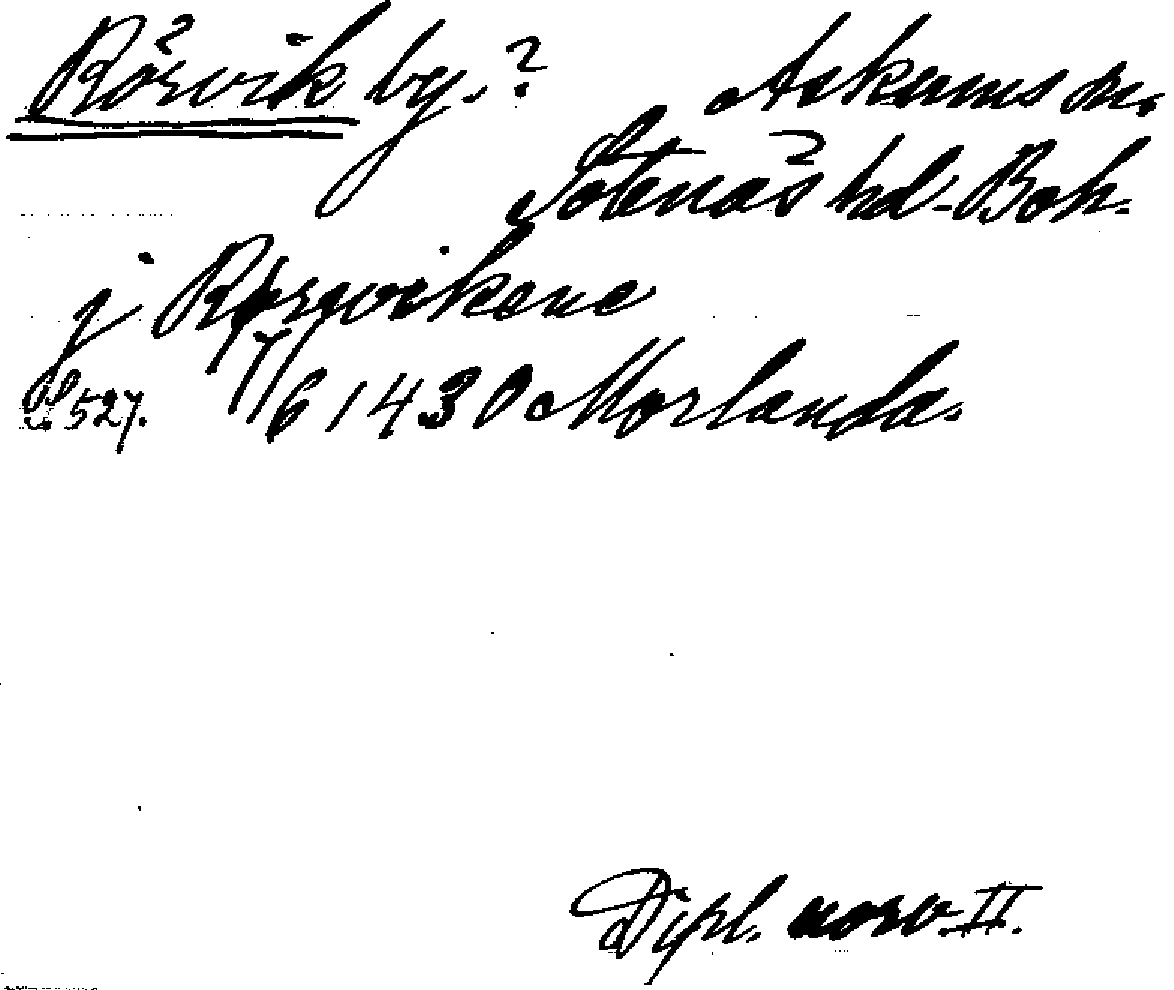 Rörvik by.? Askums sn.
Sotenäs hd. Boh.
j Rørvikene
S. 527. 17/6 1430 Morlanda.
Dipl. norv. II.